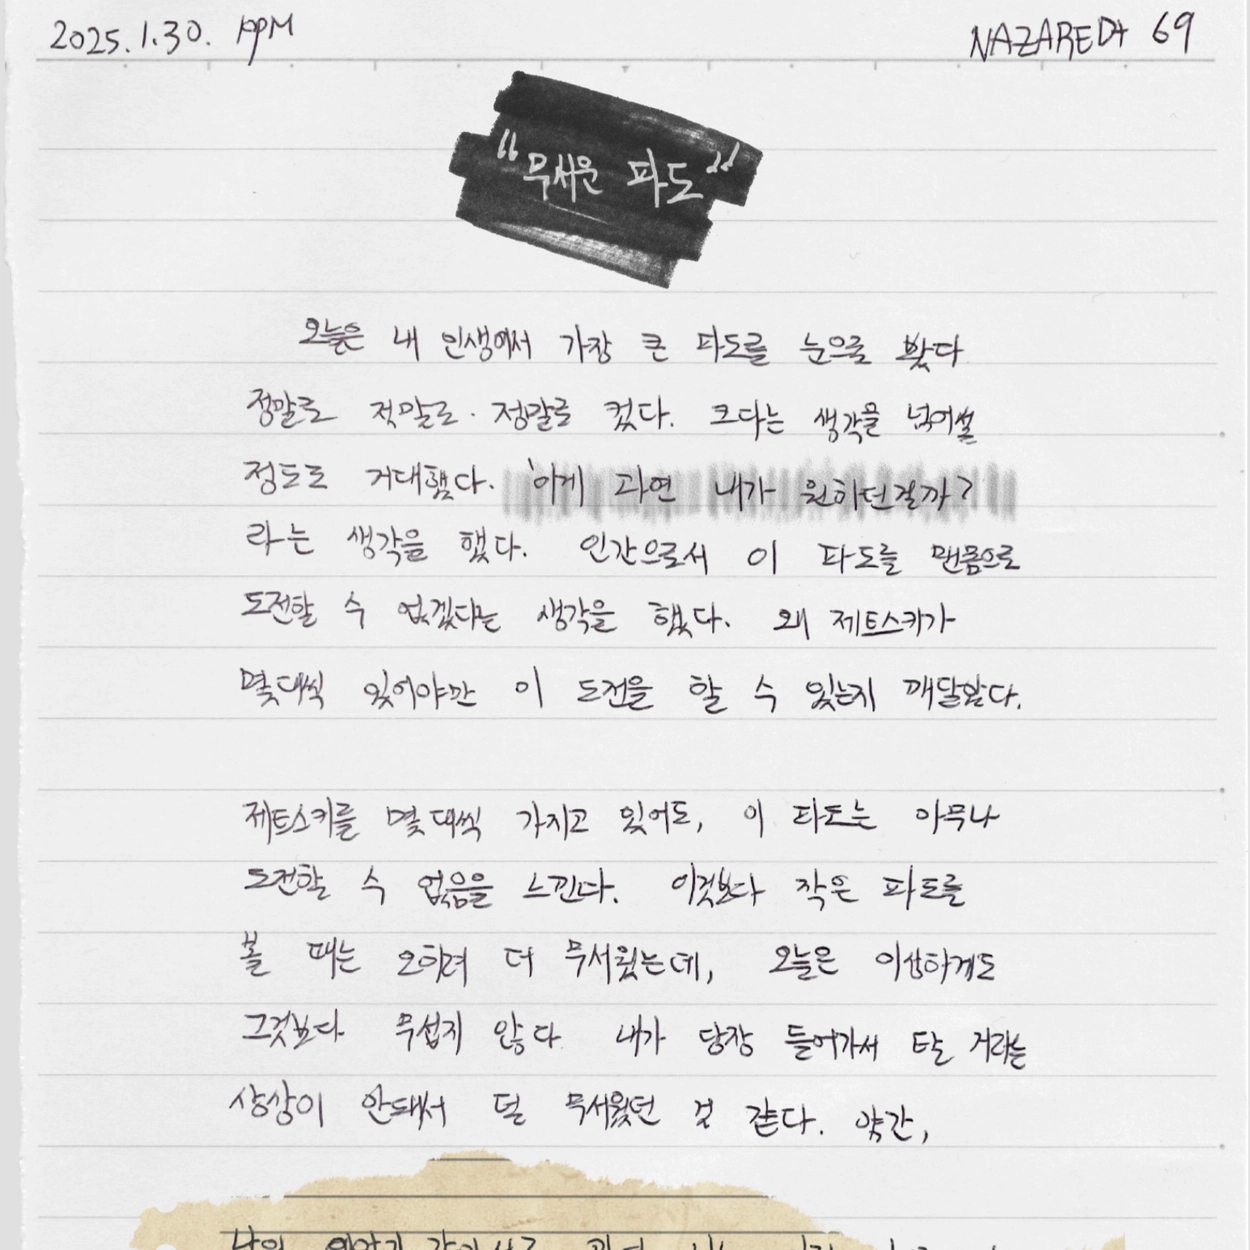 2025.1.30. 19PM
NAZARE D+ 69
"무서운 파도"
오늘은 내 인생에서 가장 큰 파도를 눈으로 봤다
정말로 정말로. 정말로 컸다. 크다는 생각을 넘어설
정도로 거대했다. '이게 과연 내가 원하던걸까?
라는 생각을 했다. 인간으로서 이 파도를 맨몸으로
도전할 수 없겠다는 생각을 했다. 왜 제트스키가
몇대씩 있어야만 이 도전을 할 수 있는지 깨달았다.
제트스키를 몇 대씩 가지고 있어도, 이 파도는 아무나
도전할 수 없음을 느낀다. 이것보다 작은 파도를
볼 때는 오히려 더 무서웠는데, 오늘은 이상하게도
그것보다 무섭지 않다. 내가 당장 들어가서 탈 거라는
상상이 안돼서 덜 무서웠던 것 같다. 약간,